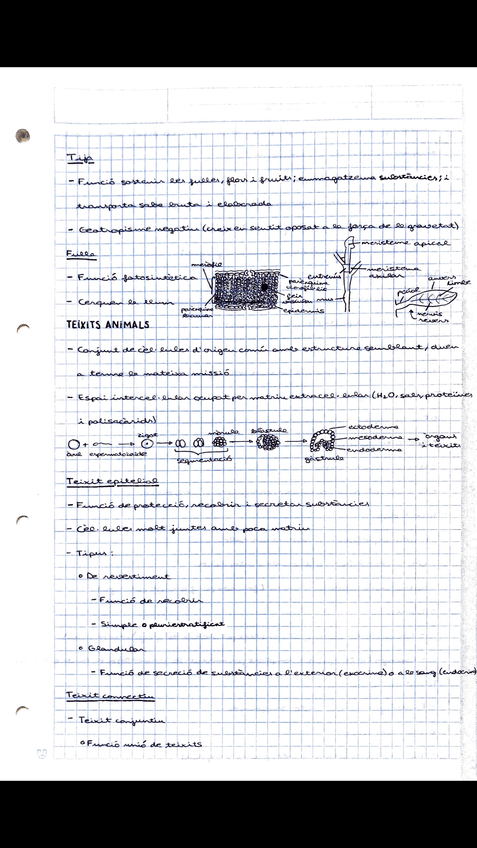 Tija
- Funció sostenir les fulles, flors i fruits; emmagatzema substàncies; i
transporta saba bruta i elaborada
- Geotropisme negatiu (creix en sentit oposat a la força de la gravetat)
Fulla
- Funció fotosintètica
- Cerquen la llum
mesofil·le
parènquima clorofíl·lic
feix vascular
epidermis
meristema apical
meristema axilar
entrenus
nus
pecíol
anvers
limbe
nervis
revers
TEIXITS ANIMALS
- Conjunt de cèl·lules d'origen comú amb estructura semblant, duen
a terme la mateixa missió
- Espai intercel·lular ocupat per matriu extracel·lular (H₂O, sals, proteïnes
i polisacàrids)
òvul + espermatozoide → zigot → mòrula → blàstula → gàstrula → òrgans i teixits
segmentació
ectoderma
mesoderma
endoderma
Teixit epitelial
- Funció de protecció, recobrir i secretar substàncies
- Cèl·lules molt juntes amb poca matriu
- Tipus:
o De revestiment
- Funció de recobrir
- Simple o pluriestratificat
o Glandular
- Funció de secreció de substàncies a l'exterior (exocrina) o a la sang (endocrina)
Teixit connectiu
- Teixit conjuntiu
o Funció unió de teixits